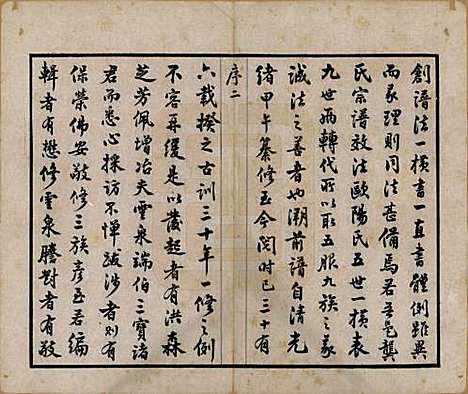 創譜法一橫書一直書體例雖異
而義理則同法甚備焉若是龔
氏宗譜效法歐陽氏五世一橫表
九世再轉代所以取五服九族之義
誠法之善者也溯前譜自清光
緒甲午纂修至今閱時已三十有
序二
六載揆之古訓三十年一修之例
不容再緩是以發起者有洪森
芝芳佩增冶夫雲泉端伯三寶諸
君而悉心採訪不憚跋涉者則有
保榮佛安敬修三族彥至若編
輯者有懋修雲泉騰對者有敬